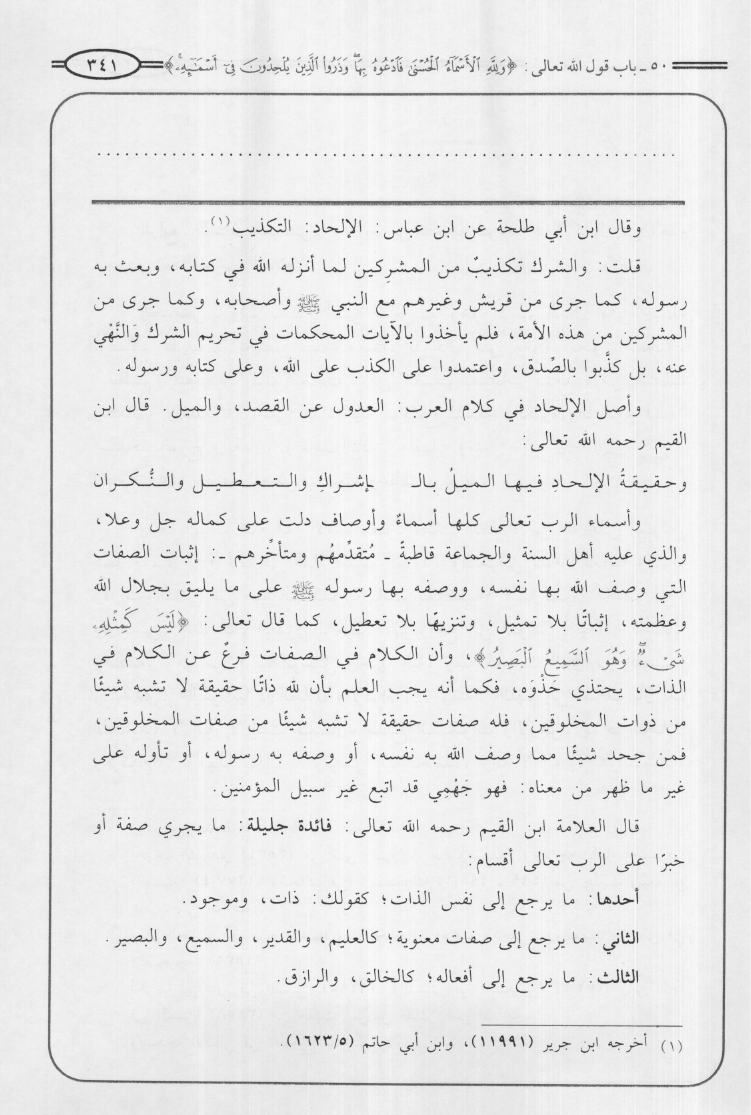 ٥٠ ـ باب قول الله تعالى: ﴿وَلِلَّهِ الْأَسْمَاءُ الْحُسْنَىٰ فَادْعُوهُ بِهَا ۖ وَذَرُوا الَّذِينَ يُلْحِدُونَ فِي أَسْمَائِهِ ۚ﴾ ٣٤١
..............................................................
وقال ابن أبي طلحة عن ابن عباس: الإلحاد: التكذيب(١).
قلت: والشرك تكذيبٌ من المشرِكين لما أنزله الله في كتابه، وبعث به
رسوله، كما جرى من قريش وغيرهم مع النبي ﷺ وأصحابه، وكما جرى من
المشركين من هذه الأمة، فلم يأخذوا بالآيات المحكمات في تحريم الشرك وَالنَّهْي
عنه، بل كذَّبوا بالصِّدق، واعتمدوا على الكذب على الله، وعلى كتابه ورسوله.
وأصل الإلحاد في كلام العرب: العدول عن القصد، والميل. قال ابن
القيم رحمه الله تعالى:
وحقيقةُ الإلحادِ فيها الميلُ بالـ ـإشراكِ والتعطيل والنُّكران
وأسماء الرب تعالى كلها أسماءٌ وأوصاف دلت على كماله جل وعلا،
والذي عليه أهل السنة والجماعة قاطبةً ـ مُتقدِّمهُم ومتأخِّرهم ـ: إثبات الصفات
التي وصف الله بها نفسه، ووصفه بها رسوله ﷺ على ما يليق بجلال الله
وعظمته، إثباتًا بلا تمثيل، وتنزيهًا بلا تعطيل، كما قال تعالى: ﴿لَيْسَ كَمِثْلِهِ
شَيْءٌ ۖ وَهُوَ السَّمِيعُ الْبَصِيرُ﴾، وأن الكلام في الصفات فرعٌ عن الكلام في
الذات، يحتذي حَذْوَه، فكما أنه يجب العلم بأن لله ذاتًا حقيقة لا تشبه شيئًا
من ذوات المخلوقين، فله صفات حقيقة لا تشبه شيئًا من صفات المخلوقين،
فمن جحد شيئًا مما وصف الله به نفسه، أو وصفه به رسوله، أو تأوله على
غير ما ظهر من معناه: فهو جَهْمِي قد اتبع غير سبيل المؤمنين.
قال العلامة ابن القيم رحمه الله تعالى: فائدة جليلة: ما يجري صفة أو
خبرًا على الرب تعالى أقسام:
أحدها: ما يرجع إلى نفس الذات؛ كقولك: ذات، وموجود.
الثاني: ما يرجع إلى صفات معنوية؛ كالعليم، والقدير، والسميع، والبصير.
الثالث: ما يرجع إلى أفعاله؛ كالخالق، والرازق.
(١) أخرجه ابن جرير (١١٩٩١)، وابن أبي حاتم (١٦٢٣/٥).